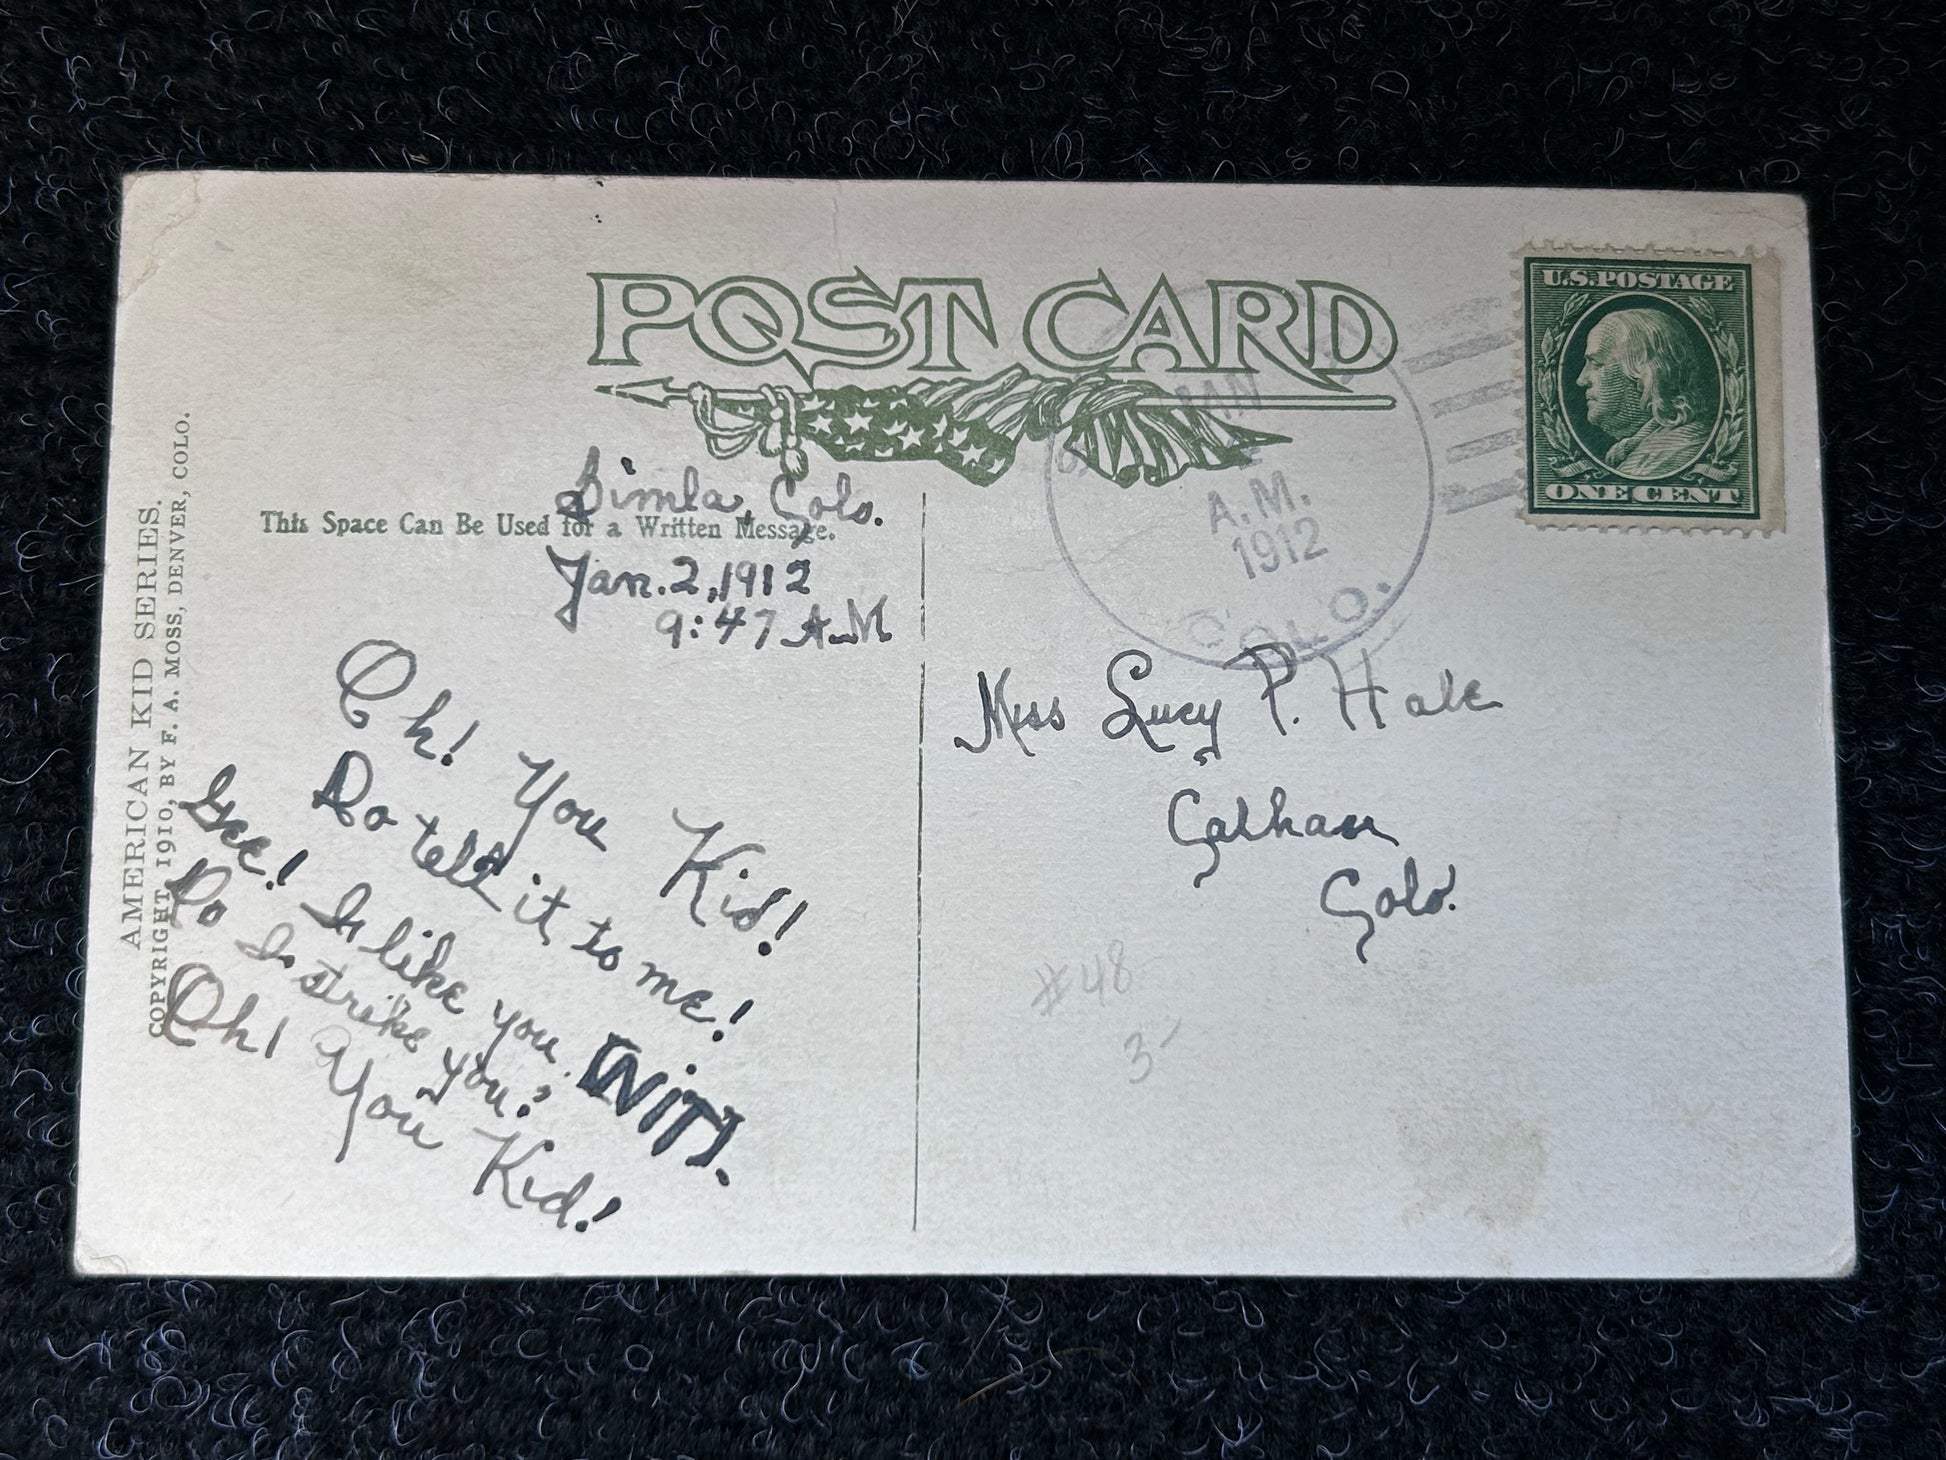 POST CARD
U.S. POSTAGE
ONE CENT
JAN
A.M.
1912
COLO.
AMERICAN KID SERIES.
COPYRIGHT, 1910, BY F. A. MOSS, DENVER, COLO.
This Space Can Be Used for a Written Message.
Simla, Colo.
Jan. 2, 1912
9:47 A.M
Oh! You Kid!
Do tell it to me!
Gee! I like you
Do I strike you?
[NiT].
Oh! You Kid!
Miss Lucy P. Hale
Calhan
Colo.
#48
3-